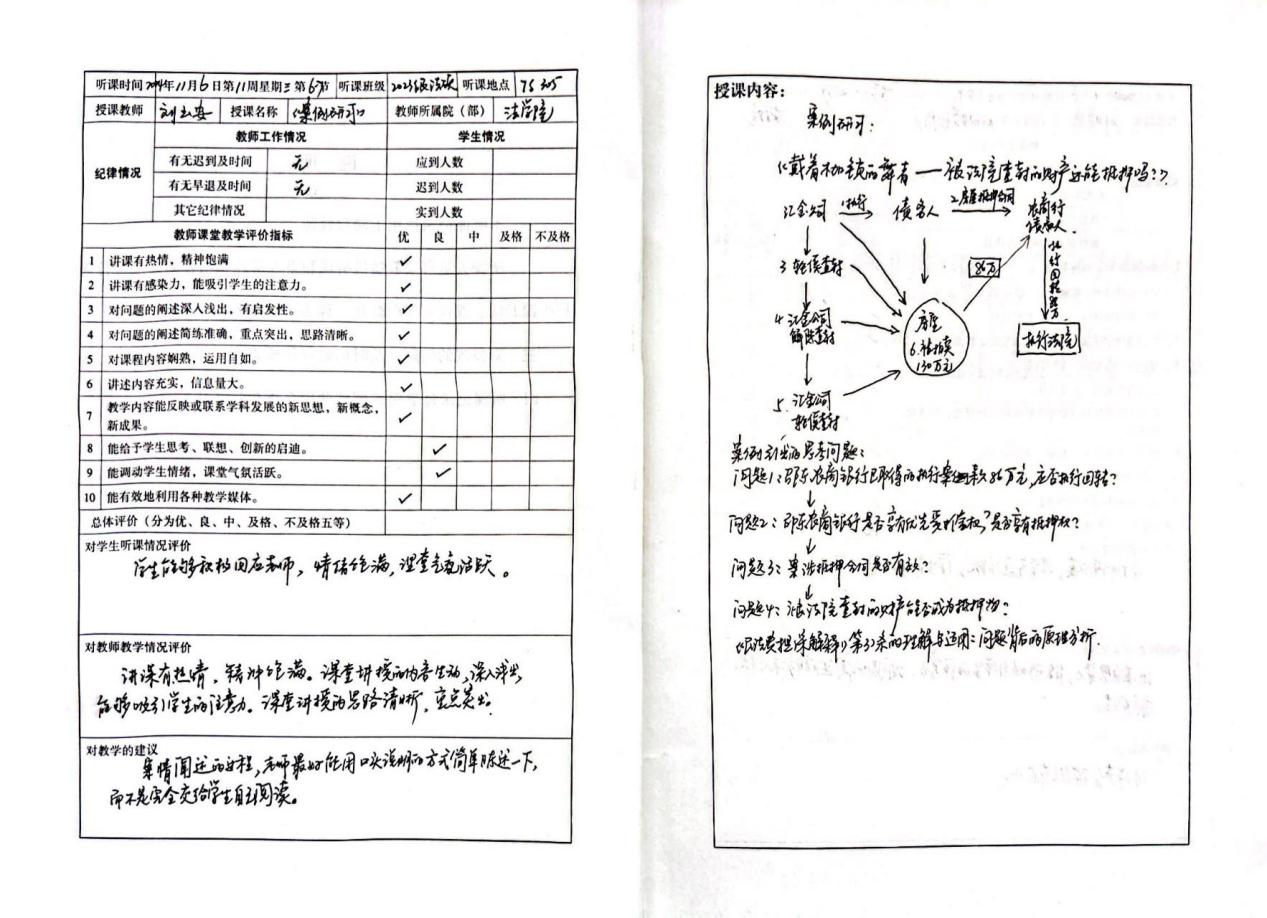 听课时间 2024年11月6日第11周星期三第6-7节 听课班级 2023级法硕 听课地点 JS305
授课教师 刘玉安 授课名称 《案例研习》 教师所属院（部） 法学院
纪律情况 教师工作情况 学生情况
有无迟到及时间 无 应到人数
有无早退及时间 无 迟到人数
其它纪律情况 实到人数
教师课堂教学评价指标 优 良 中 及格 不及格
1 讲课有热情，精神饱满 ✓
2 讲课有感染力，能吸引学生的注意力。 ✓
3 对问题的阐述深入浅出，有启发性。 ✓
4 对问题的阐述简练准确，重点突出，思路清晰。 ✓
5 对课程内容娴熟，运用自如。 ✓
6 讲述内容充实，信息量大。 ✓
7 教学内容能反映或联系学科发展的新思想，新概念，
新成果。 ✓
8 能给予学生思考、联想、创新的启迪。 ✓
9 能调动学生情绪，课堂气氛活跃。 ✓
10 能有效地利用各种教学媒体。 ✓
总体评价（分为优、良、中、及格、不及格五等）
对学生听课情况评价
学生能够积极回应老师，情绪饱满，课堂气氛活跃。
对教师教学情况评价
讲课有热情，精神饱满。课堂讲授的内容生动，深入浅出，
能够吸引学生的注意力。课堂讲授的思路清晰，重点突出。
对教学的建议
案情阐述的过程，老师最好能用口头说明的方式简单陈述一下，
而不是完全交给学生自主阅读。
授课内容：
案例研习：
《戴着枷锁的舞者——被法院查封的财产还能抵押吗？》
汇金公司 1.执行 债务人 2.房屋抵押合同 农商行
债权人
3.轮候查封
86万
执行回转86万
4.汇金公司
解除查封
房屋
6.被拍卖
130万元
执行法院
5.汇金公司
轮候查封
案例引出的思考问题：
问题1：邵东农商银行已取得的执行案款86万元，应否执行回转？
问题2：邵东农商银行是否享有优先受偿权？是否享有抵押权？
问题3：案涉抵押合同是否有效？
问题4：被法院查封的财产能否成为抵押物？
《民法典担保解释》第37条的理解与适用：问题背后的原理分析.